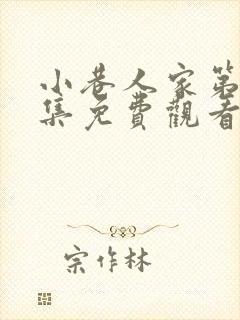 小巷人家第
集免費觀看
宗作林